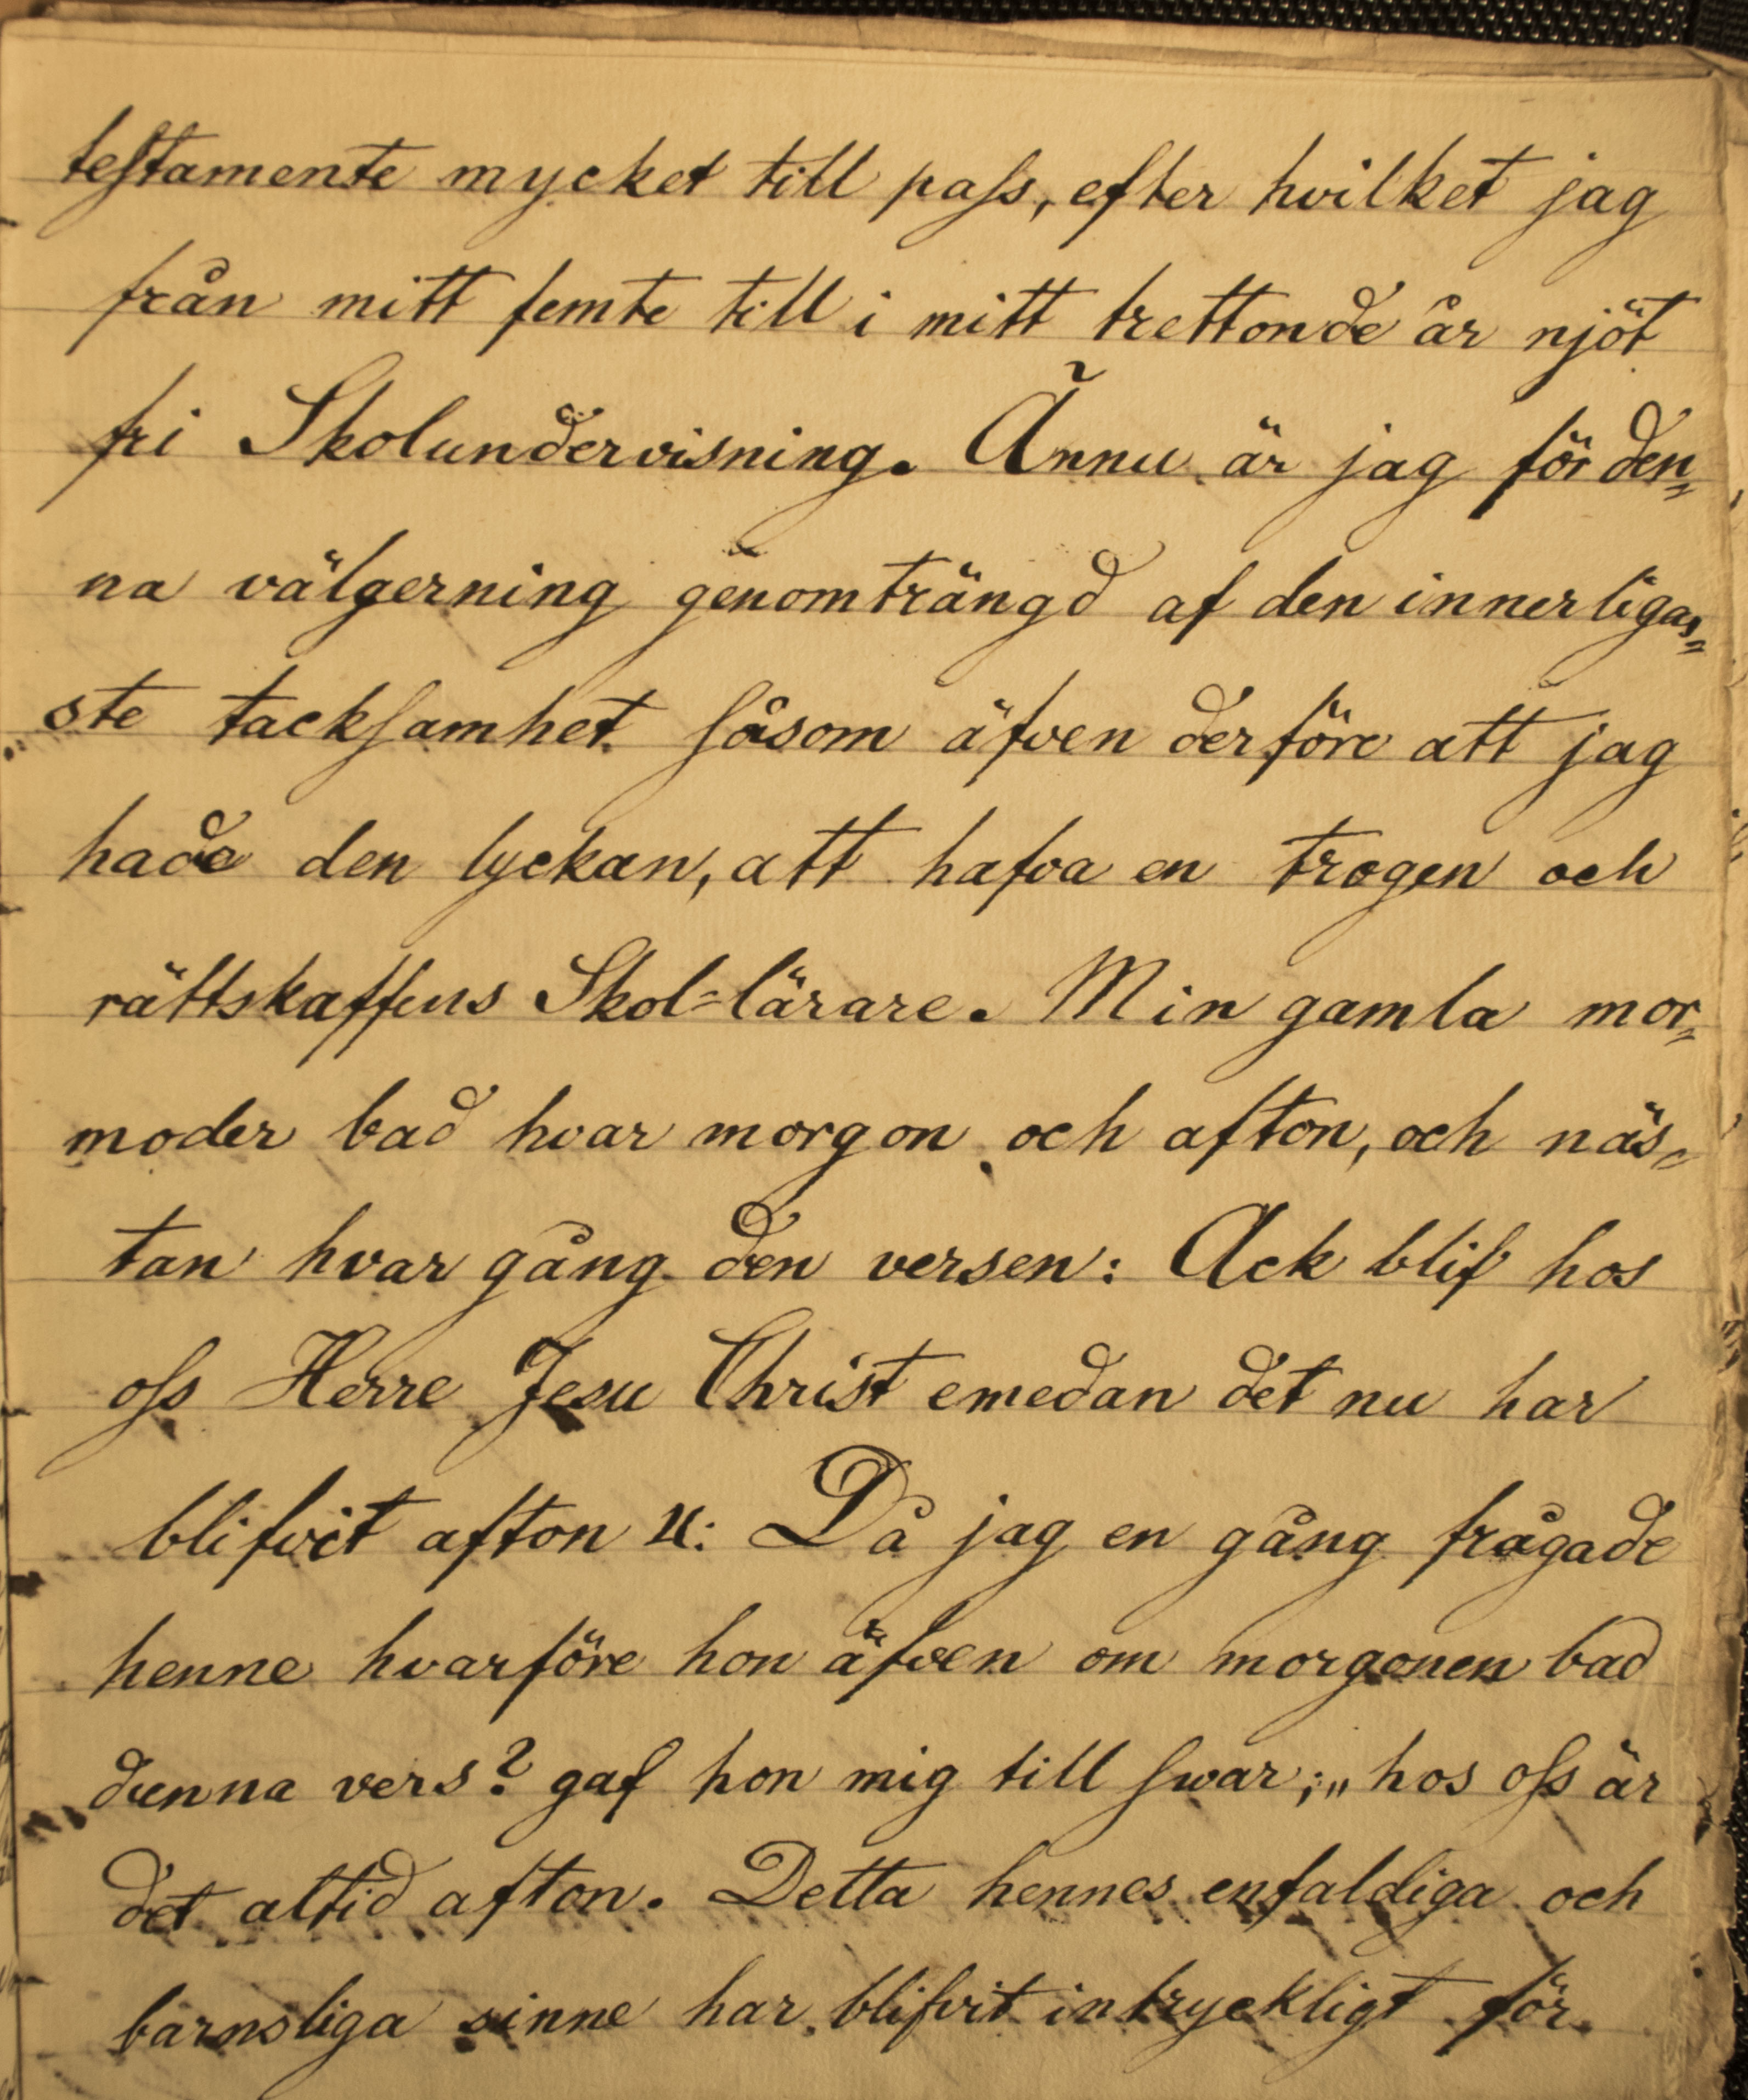 testamente mycket till pass, efter hvilket jag
från mitt femte till i mitt trettonde år njöt
fri Skolundervisning. Ännu är jag för den„
na välgerning genomträngd af den innerligas„
ste tacksamhet såsom äfven derföre att jag
hade den lyckan, att hafva en trogen och
rättskaffens Skol-lärare. Min gamla mor„
moder bad hvar morgon och afton, och näs„
tan hvar gång den versen: Ack blif hos
oss Herre Jesu Christ emedan det nu har
blifvit afton
Då jag en gång frågade
henne hvarföre hon äfven om morgonen bad
denna vers? gaf hon mig till swar; „hos oss är
det altid afton. Detta hennes enfaldiga och
barnsliga sinne har blifvit intryckligt för